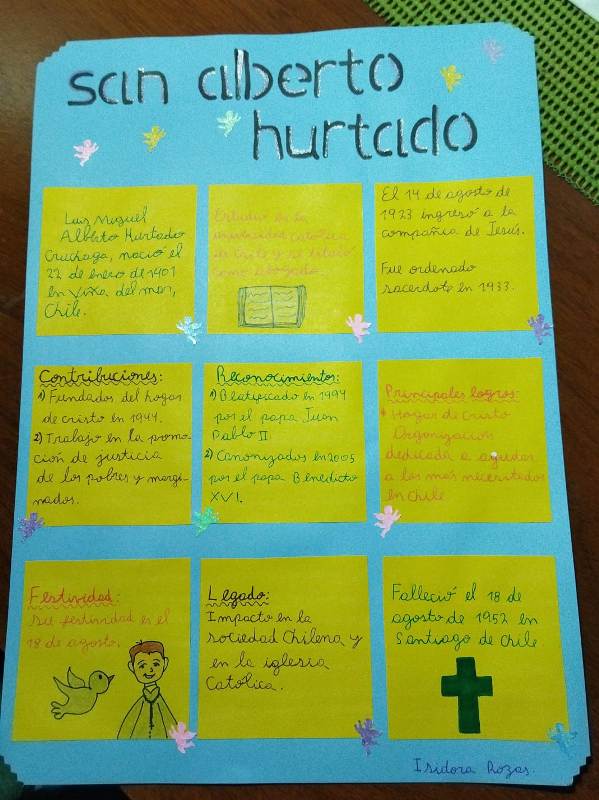 san alberto
hurtado
Luis Miguel
Alberto Hurtado
Cruchaga, nació el
22 de Enero de 1901
en Viña del mar,
Chile.
Estudió en la
universidad católica
de Chile y se tituló
como abogado.
El 14 de agosto de
1923 ingresó a la
compañía de Jesús.
Fue ordenado
sacerdote en 1933.
Contribuciones:
1) Fundador del hogar
de cristo en 1944.
2) Trabajo en la promo-
ción de justicia
de los pobres y margi-
nados.
Reconocimientos:
1) Beatificado en 1994
por el papa Juan
Pablo II
2) Canonizados en 2005
por el papa Benedicto
XVI.
Principales logros:
* Hogar de Cristo
Organización
dedicada a ayudar
a los más necesitados
en Chile
Festividad:
su festividad es el
18 de agosto.
Legado:
Impacto en la
sociedad Chilena y
en la iglesia
Católica.
Falleció el 18 de
agosto de 1952 en
Santiago de Chile.
Isidora Rozas.